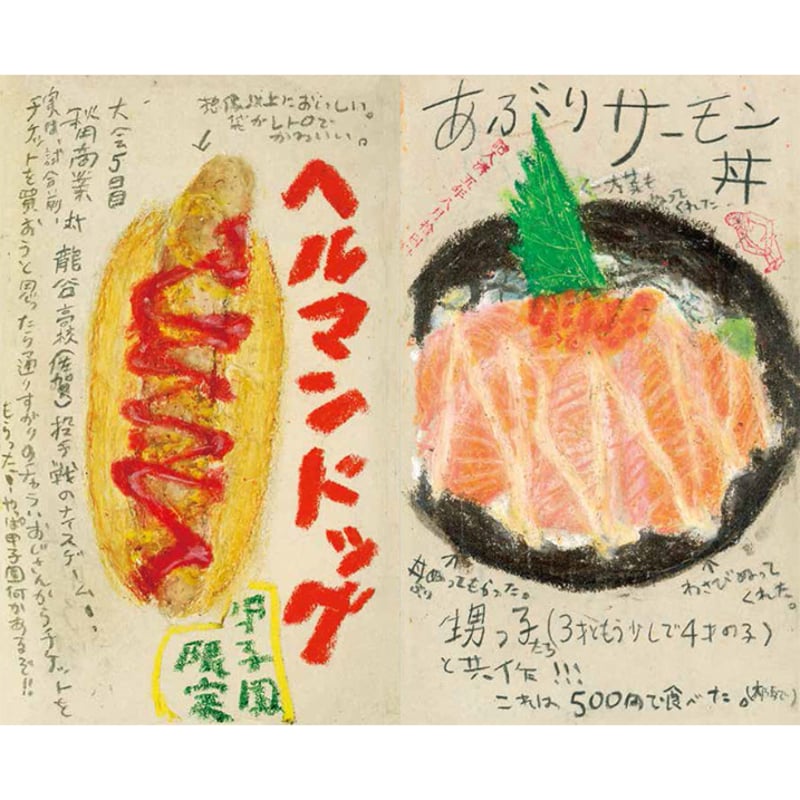 想像以上においしい。
袋がレトロで
かわいい。
ヘルマンドッグ
甲子園
限定
大会5日目
秋田商業 対 龍谷高校(佐賀) 投手戦のナイスゲーム!
実は、試合前、
チケットを買おうと思ったら通りすがりのチャラいおじさんからチケットを
もらった!やっぱ甲子園何かあるぞ!!
あぶりサーモン
丼
←大葉も
ぬって
くれた
丼
ぬってもらった。
わさびぬって
くれた。
甥っ子たち(3才ともう少しで4才の子)
と共作!!!
これは500円で食べた。